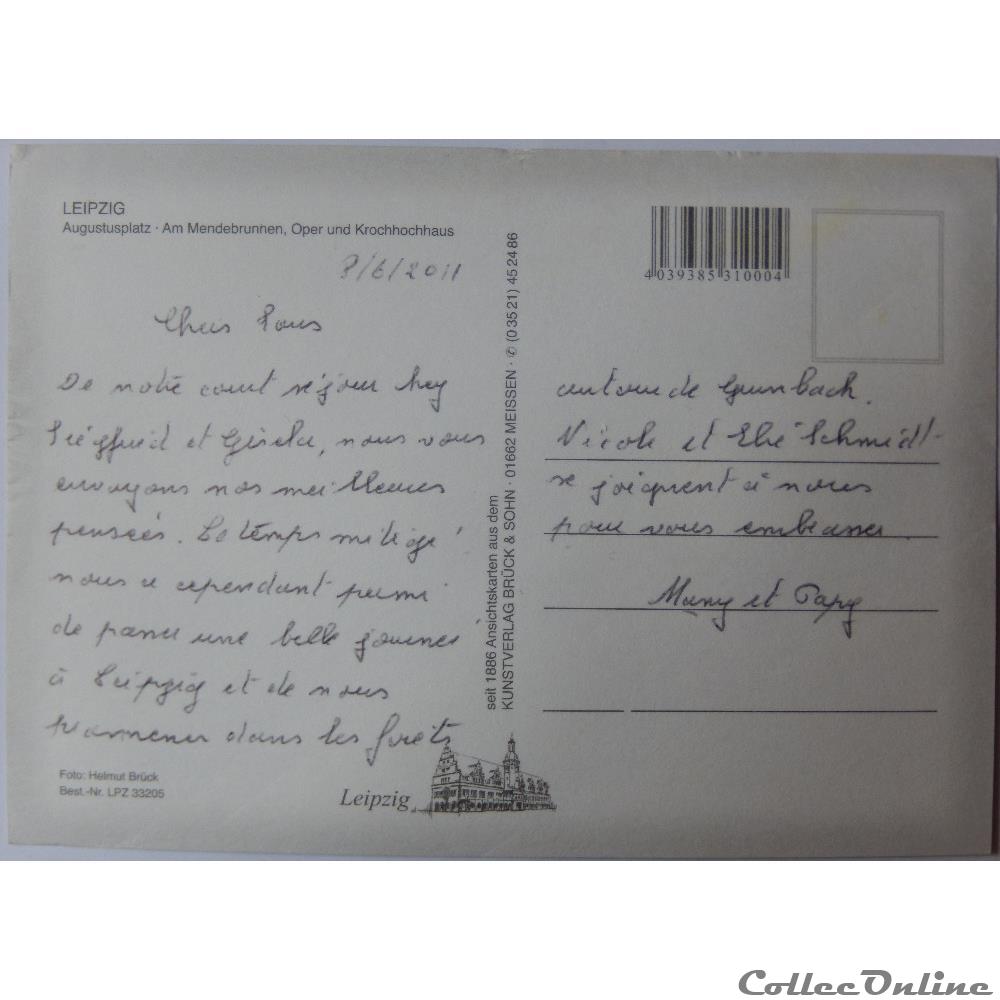 LEIPZIG
Augustusplatz · Am Mendebrunnen, Oper und Krochhochhaus
8/6/2011
Chers Tous
De notre court séjour chez
Siegfried et Gisela, nous vous
envoyons nos meilleures
pensées. Le temps mitigé
nous a cependant permi
de passer une belle journée
à Leipzig et de nous
promener dans les forêts
Foto: Helmut Brück
Best.-Nr. LPZ 33205
Leipzig
seit 1886 Ansichtskarten aus dem
KUNSTVERLAG BRÜCK & SOHN · 01662 MEISSEN · ✆ (0 35 21) 45 24 86
4 039385 310004
autour de Grumbach.
Nicole et Elié Schmidt
se joignent à nous
pour vous embrasser
Mamy et Papy
CollecOnline